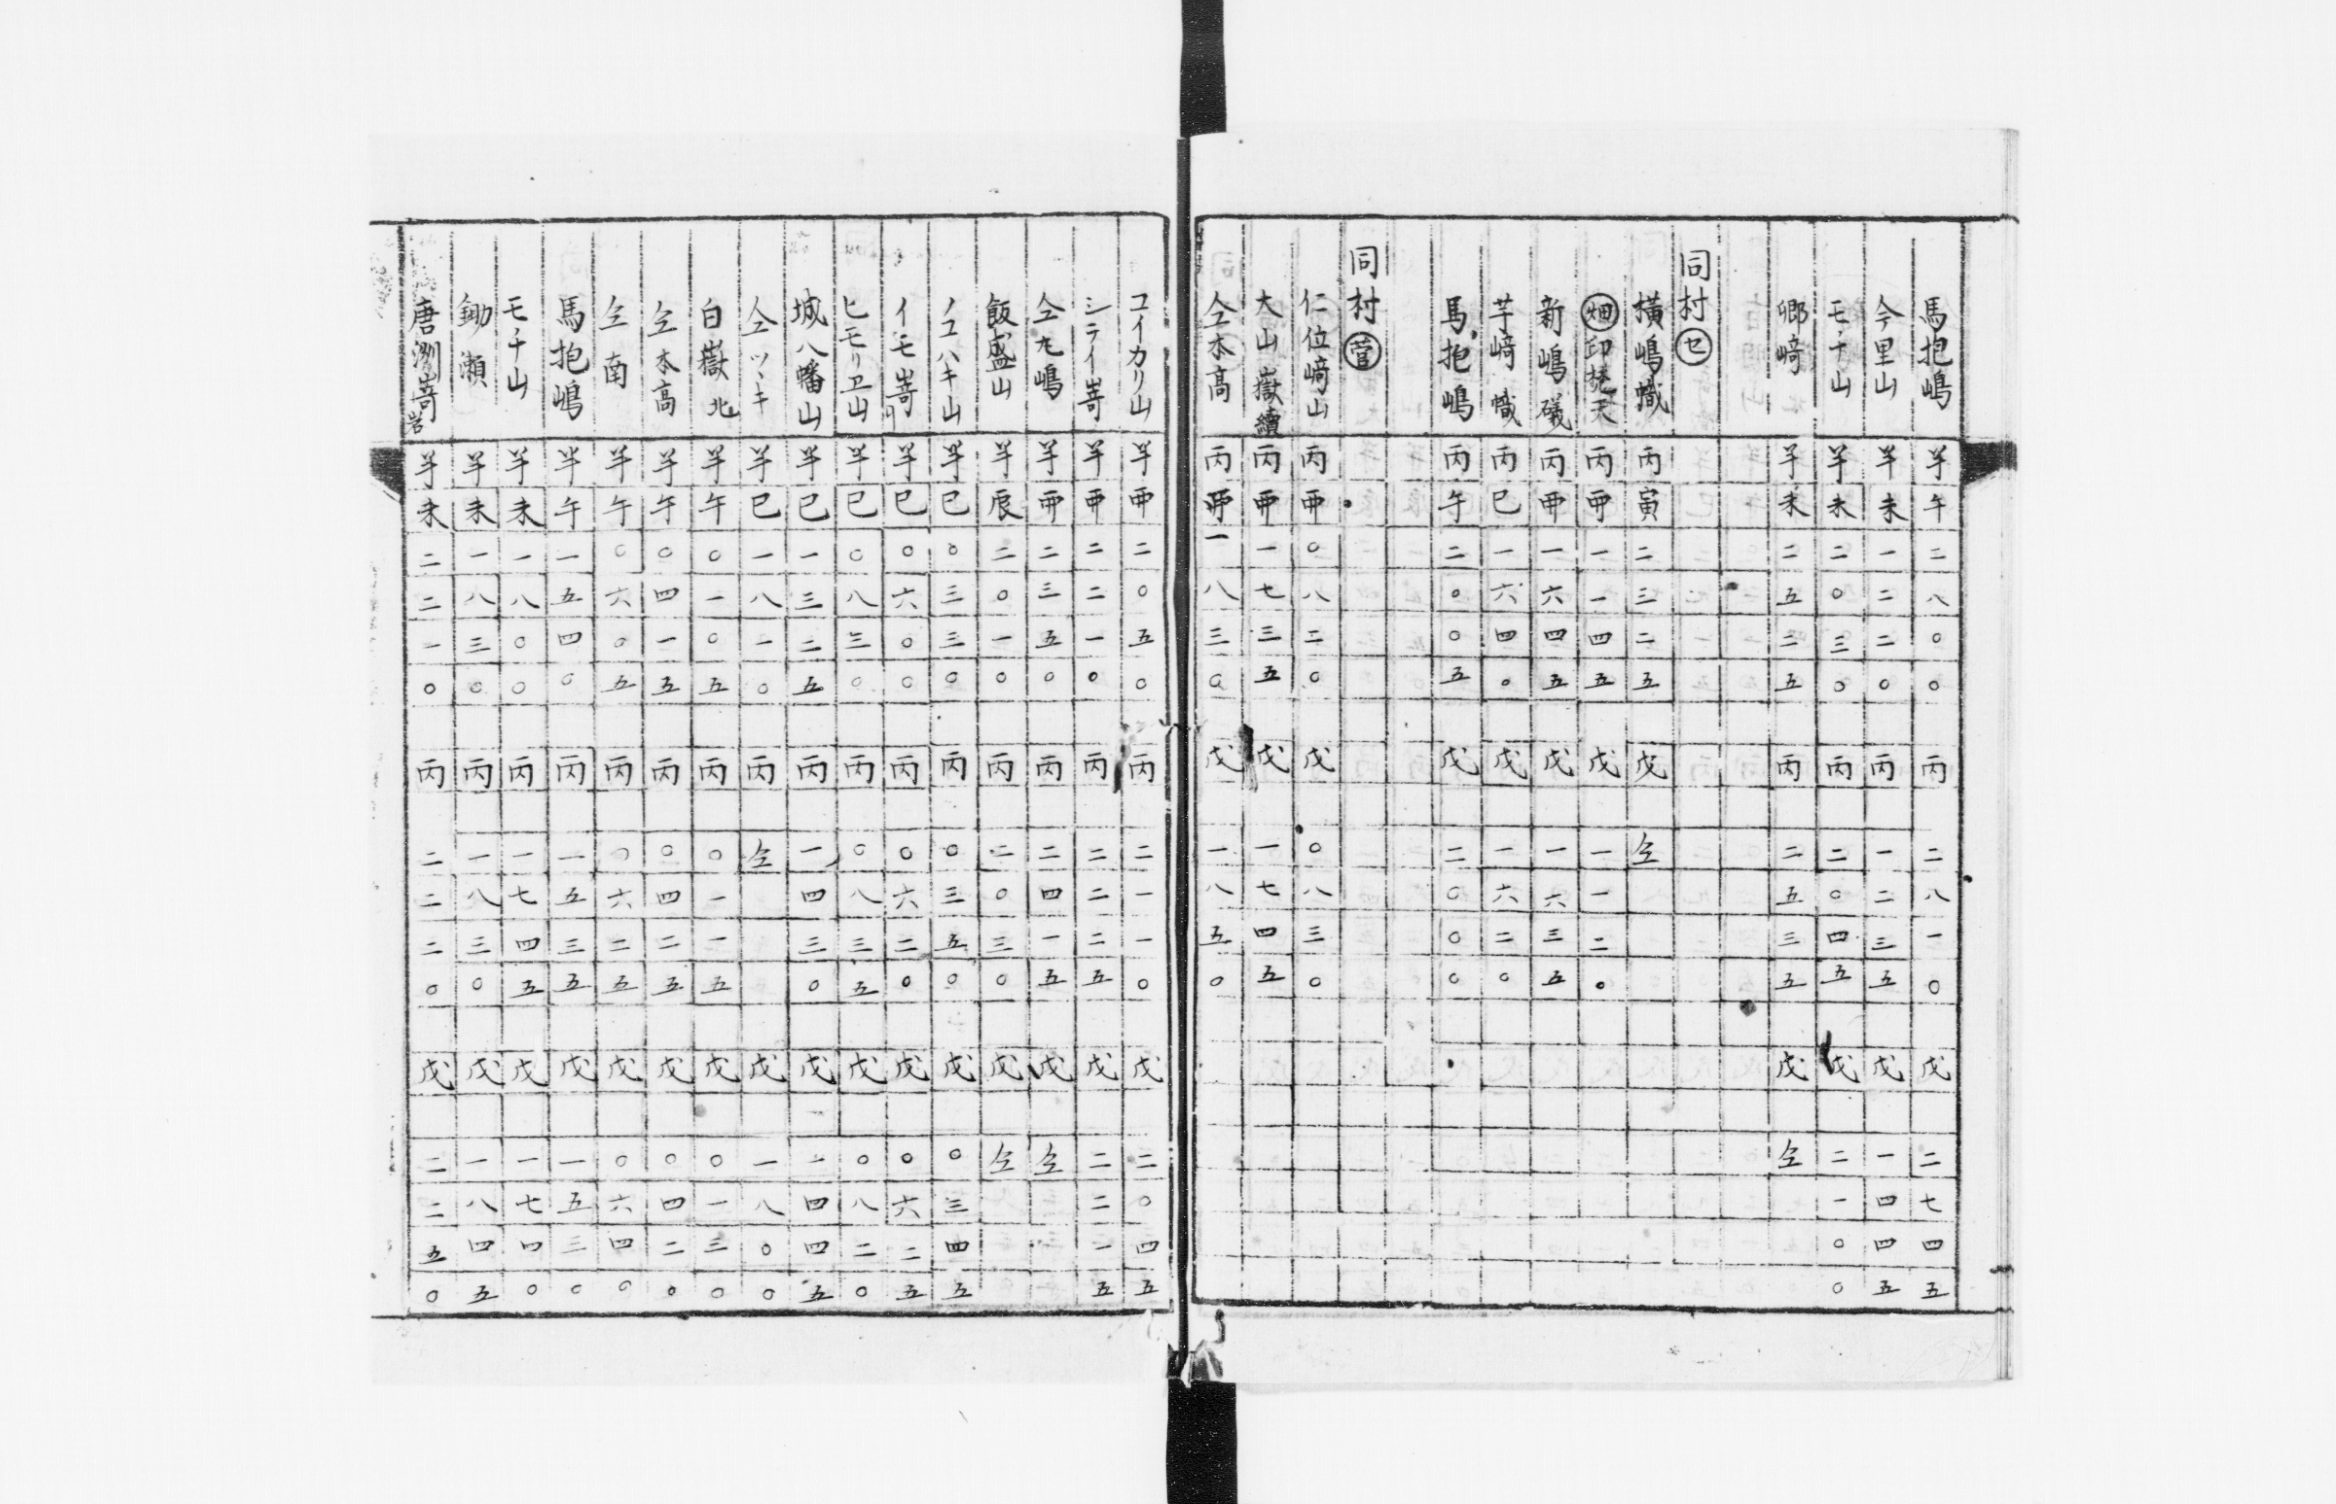 馬抱嶋 半午二八〇〇 丙 二八一〇 戊 二七四五
今里山 半未一二二〇 丙 一二三五 戊 一四四五
モヽ十山 半未二〇三〇 丙 二〇四五 戊 二一〇〇
郷﨑 半未二五二五 丙 二五三五 戊 仝
同村㋝
横嶋幟 丙寅二三二五 戊 仝
畑印梵天 丙丣一一四五 戊 一一二〇
新嶋礒 丙丣一六四五 戊 一六三五
芋﨑幟 丙巳一六四〇 戊 一六二〇
馬抱嶋 丙午二〇〇五 戊 二〇〇〇
同村菅
仁位﨑山 丙丣〇八二〇 戊 〇八三〇
大山嶽續 丙丣一七三五 戊 一七四五
仝本高 丙丣一八三〇 戊 一八五〇
コイカリ山 半丣二〇五〇 丙 二一一〇 戊 二〇四五
シライ嵜 半丣二二一〇 丙 二二二五 戊 二二一五
仝九嶋 半丣二三五〇 丙 二四一五 戊 仝
飯盛山 半辰二〇一〇 丙 二〇三〇 戊 仝
ノコハキ山 半巳〇三三〇 丙 〇三五〇 戊 〇三四五
イモ嵜 半巳〇六〇〇 丙 〇六二〇 戊 〇六二五
ヒモリヱ山 半巳〇八三〇 丙 〇八三五 戊 〇八二〇
城八幡山 半巳一三二五 丙 一四三〇 戊 一四四五
仝ツヽキ 半巳一八一〇 丙 仝 戊 一八〇〇
白嶽北 半午〇一〇五 丙 〇一一五 戊 〇一三〇
仝本高 半午〇四一五 丙 〇四二五 戊 〇四二〇
仝南 半午〇六〇五 丙 〇六二五 戊 〇六四〇
馬抱嶋 半午一五四〇 丙 一五三五 戊 一五三〇
モヽ十山 半未一八〇〇 丙 一七四五 戊 一七四〇
鋤瀬 半未一八三〇 丙 一八三〇 戊 一八四五
唐洲嵜岩 半未二二一〇 丙 二二二〇 戊 二二五〇